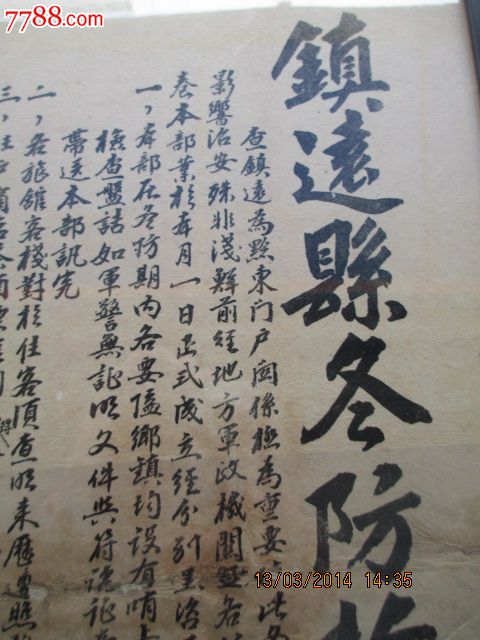 7788.com
中国收藏热线
鎮遠縣冬防指
查鎮遠為黔東门户関係極為重要 此冬
影響治安殊非淺鮮前經地方軍政機關暨各
本部業於本月一日正式成立經分别呈洛
一，本部在冬防期内各要隘鄉鎮均设有哨
檢查盤詰如軍警無証明文件與符號証
帶送本部訊究
二，各旅館客棧對於住客須查明来歷遵照
三，住户商店
13/03/2014 14:35